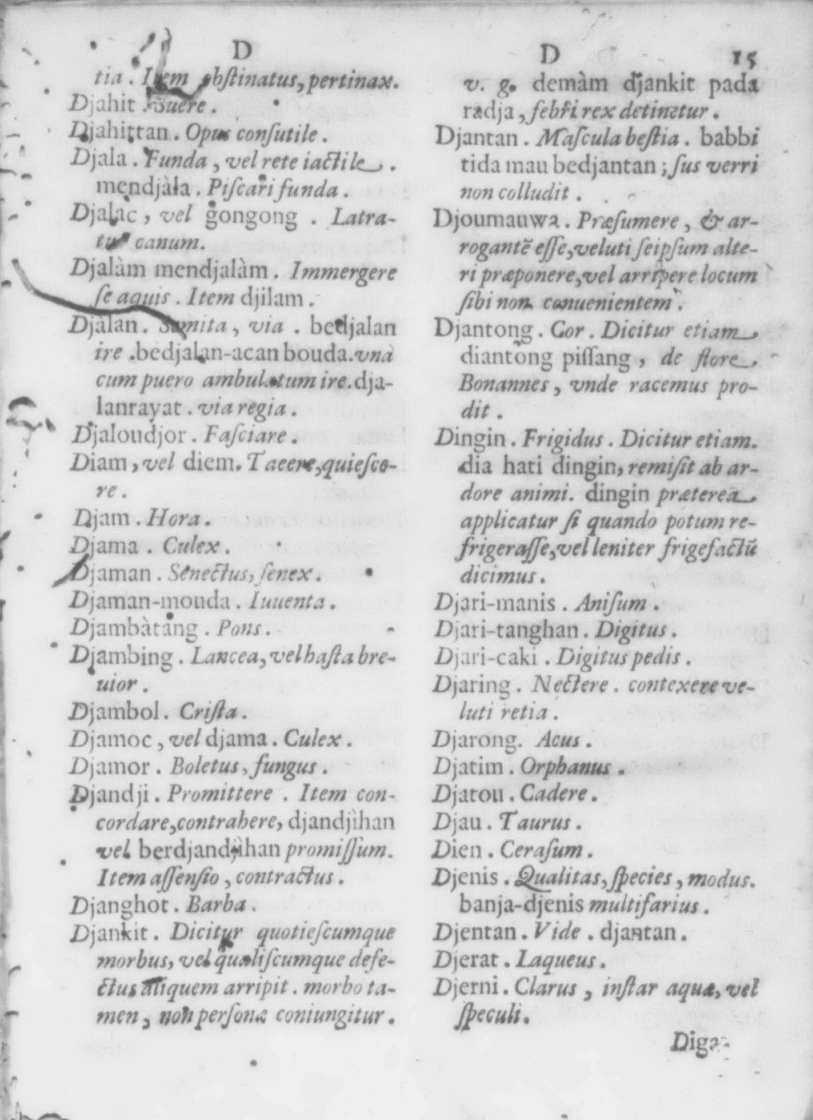 D
tia . Item obſtinatus, pertinax.
Djahit . Suere .
Djahittan . Opus conſutile .
Djala . Funda , vel rete iactile .
mendjàla . Piſcari funda .
Djalac , vel gongong . Latra-
tus canum.
Djalàm mendjalàm . Immergere
ſe aquis . Item djilam .
Djàlan . Semita , via . bedjalan
ire . bedjalan-acan bouda . vnà
cum puero ambulatum ire. dja-
lanrayat . via regia .
Djaloudjor . Faſciare .
Diam , vel diem . Tacere, quieſce-
re .
Djam . Hora .
Djama . Culex .
Djaman . Senectus, ſenex .
Djaman-mouda . Iuuenta .
Djambàtang . Pons .
Djambing . Lancea, vel haſta bre-
uior .
Djambol . Criſta .
Djamoc , vel djama . Culex .
Djamor . Boletus, fungus .
Djandji . Promittere . Item con-
cordare, contrahere, djandjìhan
vel berdjandjìhan promiſſum.
Item aſſenſio , contractus .
Djanghot . Barba .
Djankit . Dicitur quotieſcumque
morbus, vel qualiſcumque defe-
ctus aliquem arripit . morbo ta-
men , non perſonæ coniungitur .
D 15
v. g. demàm djankit pada
radja , febri rex detinetur .
Djantan . Maſcula beſtia . babbi
tida mau bedjantan ; ſus verri
non colludit .
Djoumauwa . Præſumere , & ar-
rogantẽ eſſe, veluti ſeipſum alte-
ri præponere, vel arripere locum
ſibi non conuenientem .
Djantong . Cor . Dicitur etiam
diantong piſſang , de flore
Bonannes , vnde racemus pro-
dit .
Dingin . Frigidus . Dicitur etiam.
dia hati dingin, remiſit ab ar-
dore animi. dingin præterea
applicatur ſi quando potum re-
frigeraſſe, vel leniter frigefactũ
dicimus .
Djari-manis . Aniſum .
Djari-tanghan . Digitus .
Djari-caki . Digitus pedis .
Djaring . Nectere . contexere ve-
luti retia .
Djarong. Acus .
Djatim . Orphanus .
Djatou . Cadere .
Djau . Taurus .
Dien . Ceraſum .
Djenis . Qualitas, ſpecies , modus.
banja-djenis multifarius .
Djentan . Vide . djantan .
Djerat . Laqueus .
Djerni . Clarus , inſtar aquæ, vel
ſpeculi .
Diga-